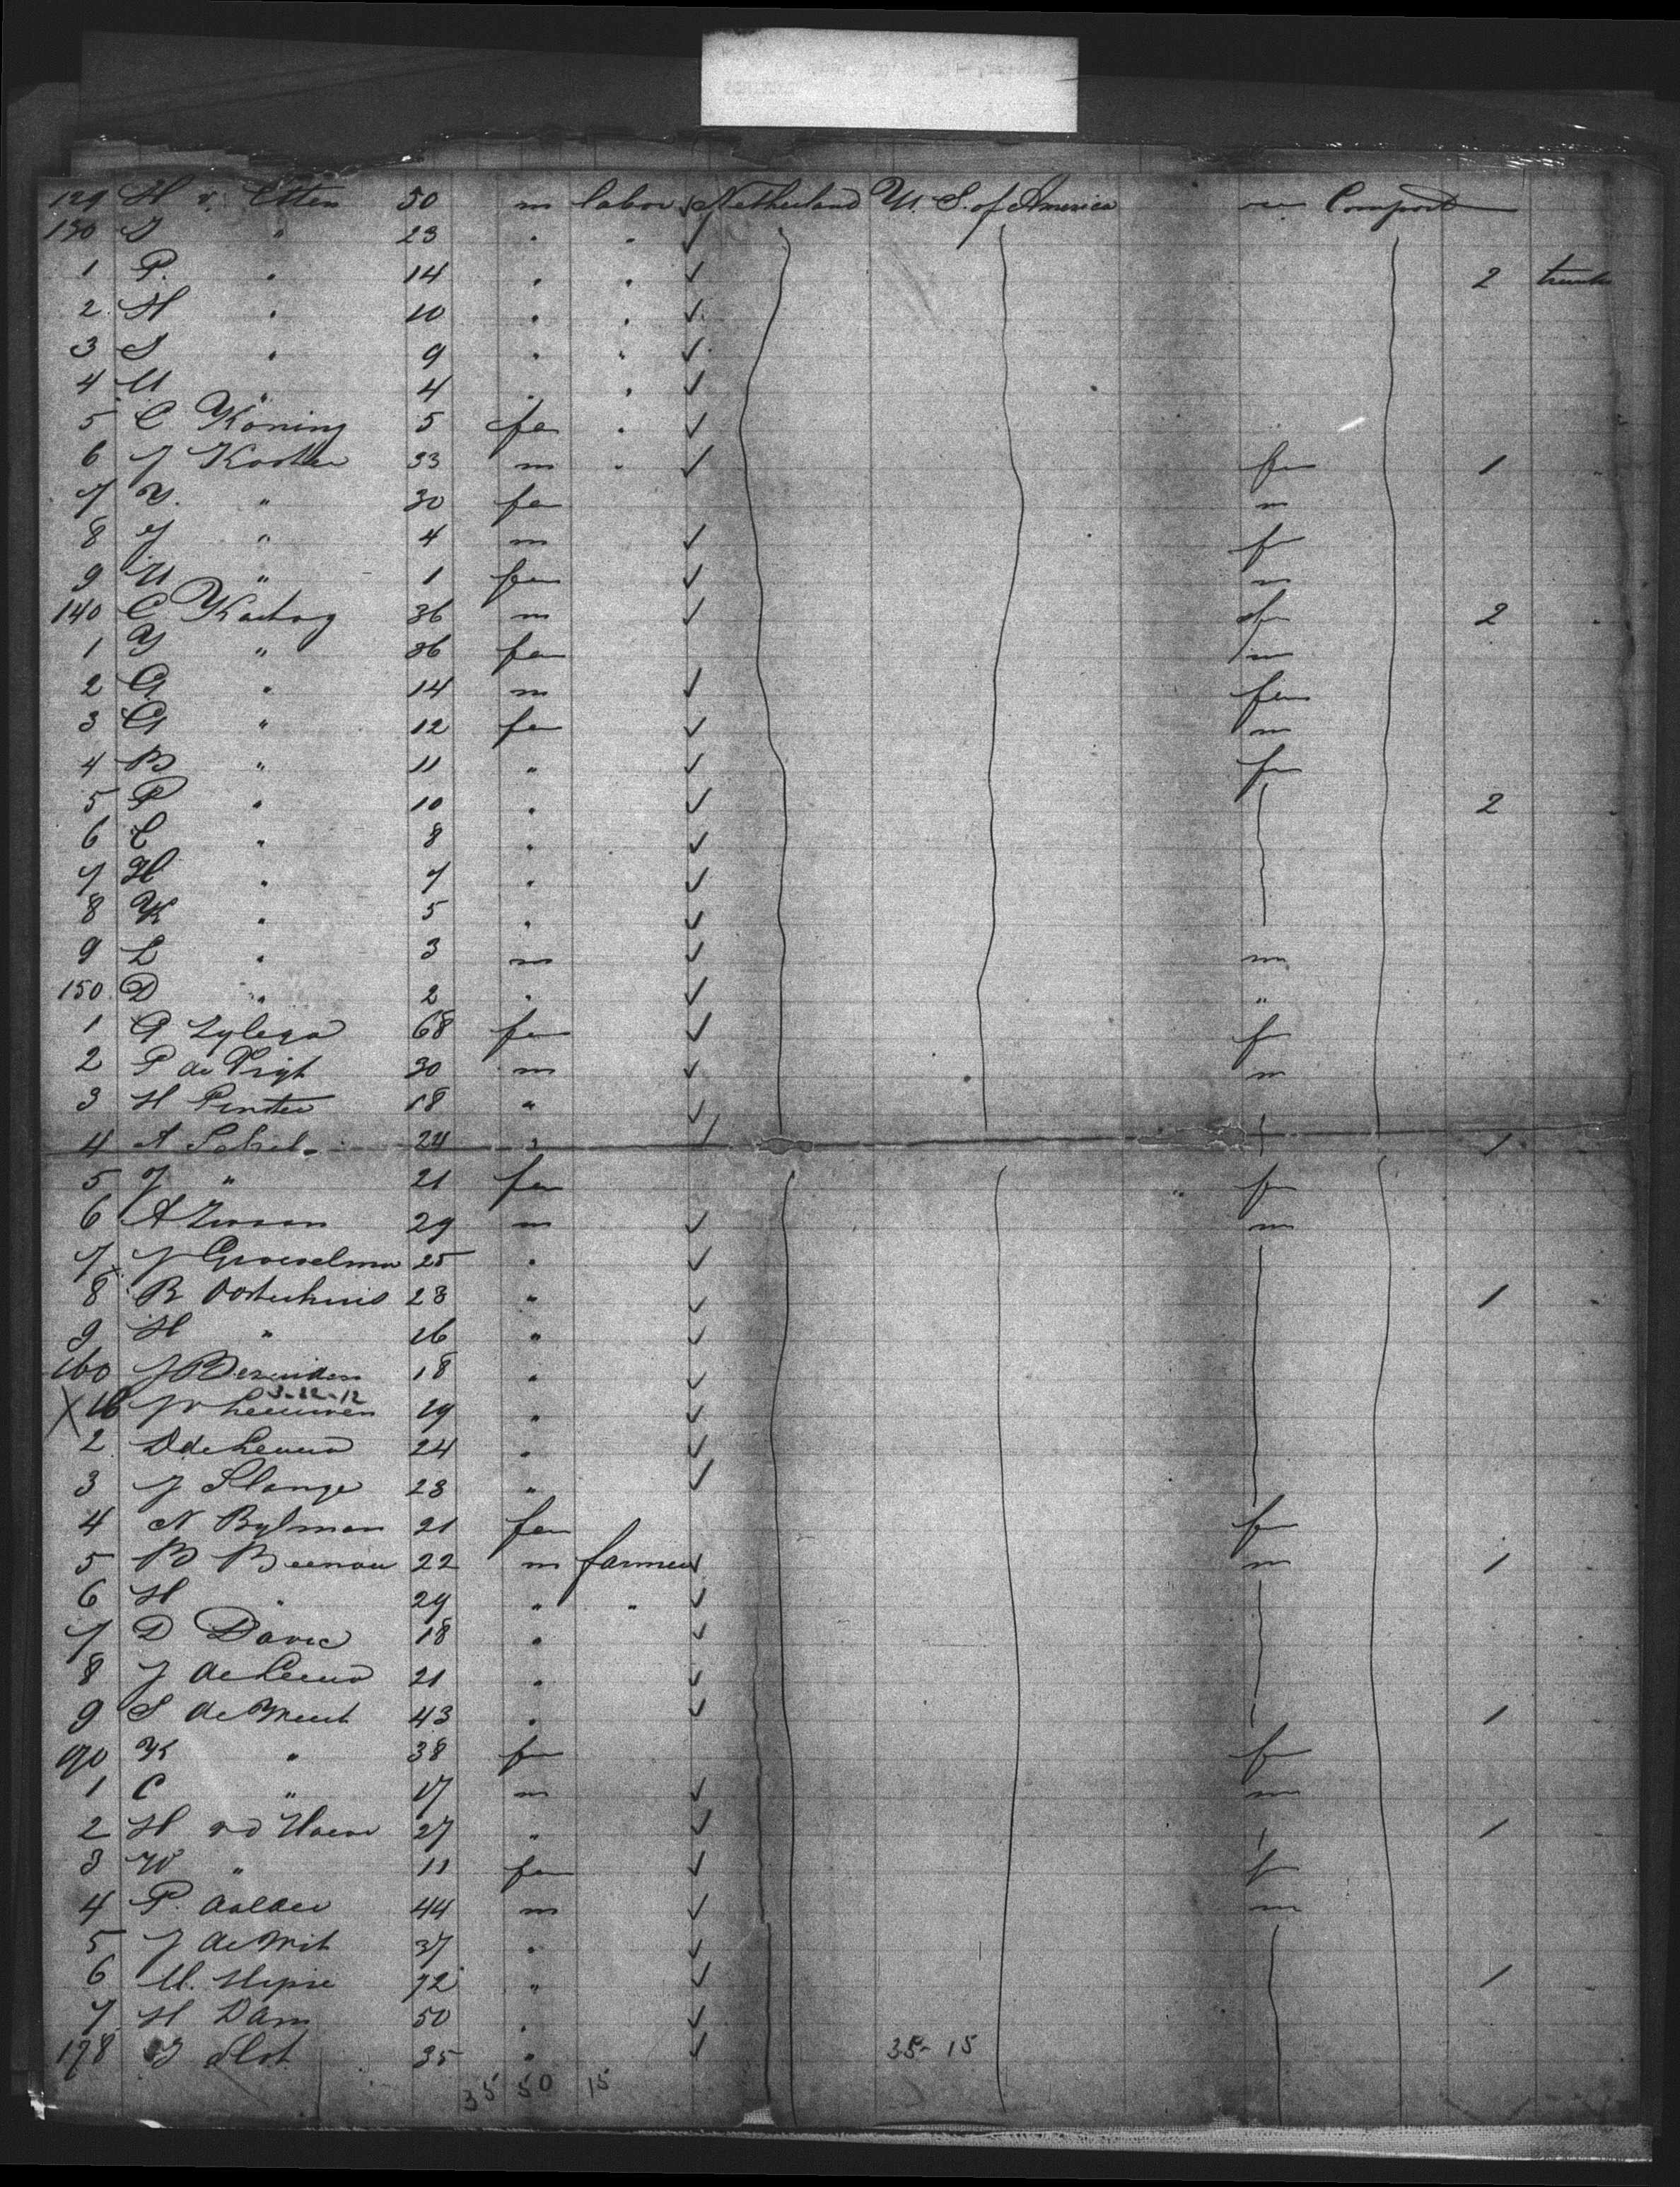 129 H v. Etten 50 m labor Netherland U. S. of America Compart
130 J " 23 " "
1 P. " 14 " " 2 trunks
2 H " 10 " "
3 S " 9 " "
4 M " 4 " "
5 C Koning 5 fe "
6 J Koster 33 m " fm 1 "
7 Y. " 30 fe m
8 J " 4 m f
9 M " 1 fem m
140 C Kartog 36 m fm 2 "
1 Y " 36 fe m
2 G " 14 m fem
3 G " 12 fe m
4 B " 11 " fm
5 P " 10 " 2 "
6 C " 8 "
7 H " 7 "
8 K " 5 "
9 L " 3 m m
150 D " 2 " "
1 G Zylega 68 fe f
2 P de Prigt 30 m m
3 H Pinster 18 "
4 A Schel 24 " 1
5 J " 21 fe fm
6 A 29 m m
7 J Groeelman 25 "
8 B Oosterhuis 23 " 1 "
9 H " 26 "
160 J Bezuiden 18 "
3-22-12
X 16 J v Leeuwen 29 "
2 D de Leeuw 24 "
3 J Slange 23 "
4 N Bylman 21 fem fm
5 B Beenou 22 m farmer m 1 "
6 H " 29 " "
7 D Davie 18 "
8 J de Leeuw 21 "
9 S de Ment 43 " 1 "
170 K " 38 fe fm
1 C " 17 m m
2 H v d Hoeve 27 " 1 "
3 W " 11 fe f
4 P. Aalder 44 m m
5 J de Wit 37 "
6 M. 72 " 1 "
7 H Dam 50 "
178 J Slot 35 " 35-15
35 50 15